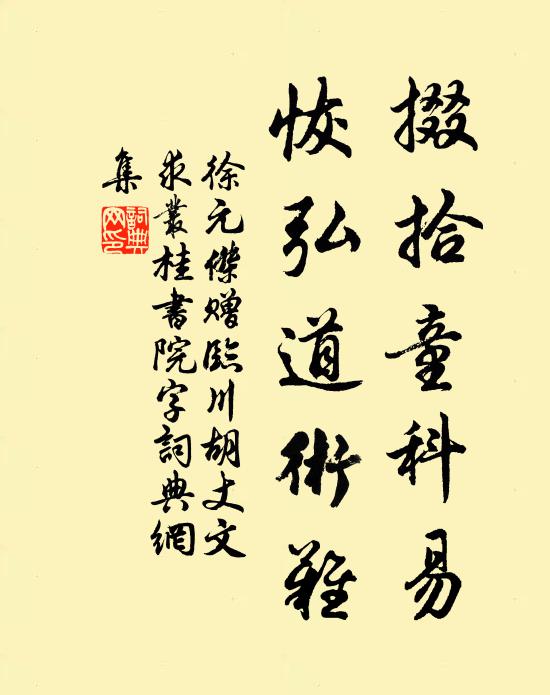 掇拾童科易
恢弘道術難
徐元傑贈臨川胡丈文
求叢桂書院字詞典網
集
詞典網印